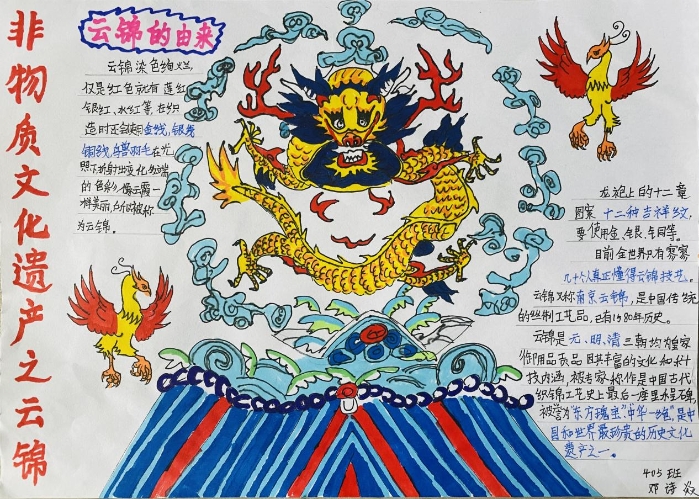 非物质文化遗产之云锦
云锦的由来
云锦染色绚烂,
仅是红色就有莲红
银红、水红等,在织
造时还会用金线,银线
铜线,鸟兽羽毛在光
照下折射出变化多端
的色彩,像云霞一
样美丽,所以被称
为云锦。
龙袍上的十二章
图案十二种吉祥纹,
要使用金、银、铜等。
目前全世界只有寥寥
几十个人真正懂得云锦技艺。
云锦又称南京云锦,是中国传统
的丝制工艺品,已有1580年历史。
云锦是元、明、清三朝均为皇家
御用品贡品,因其丰富的文化和科
技内涵,被专家称作是中国古代
织锦工艺史上最后一座里水呈碑,
被誉为"东方瑰宝""中华一绝",是中
国和世界最珍贵的历史文化
遗产之一。
405班
邓诗